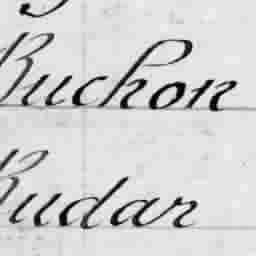 Buchon
Rudar